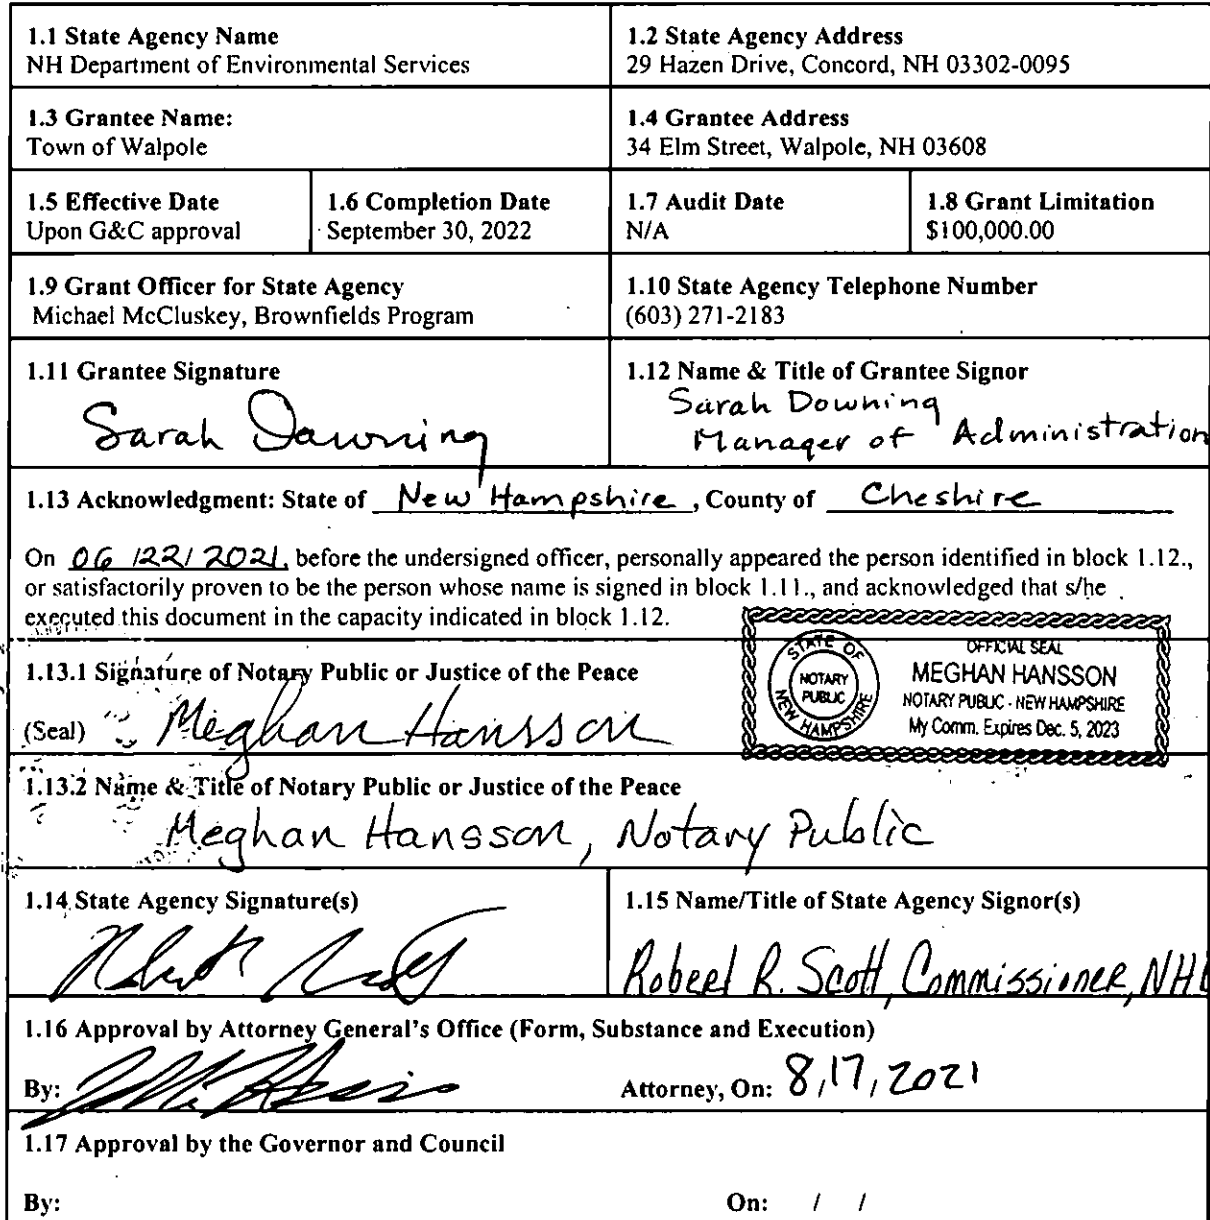 1.1 State Agency Name
NH Department of Environmental Services
1.2 State Agency Address
29 Hazen Drive, Concord, NH 03302-0095
1.3 Grantee Name:
Town of Walpole
1.4 Grantee Address
34 Elm Street, Walpole, NH 03608
1.5 Effective Date
Upon G&C approval
1.6 Completion Date
September 30, 2022
1.7 Audit Date
N/A
1.8 Grant Limitation
$100,000.00
1.9 Grant Officer for State Agency
Michael McCluskey, Brownfields Program
1.10 State Agency Telephone Number
(603) 271-2183
1.11 Grantee Signature
Sarah Downing
1.12 Name & Title of Grantee Signor
Sarah Downing
Manager of Administration
1.13 Acknowledgment: State of New Hampshire, County of Cheshire
On 06/22/2021, before the undersigned officer, personally appeared the person identified in block 1.12.,
or satisfactorily proven to be the person whose name is signed in block 1.11., and acknowledged that s/he
executed this document in the capacity indicated in block 1.12.
1.13.1 Signature of Notary Public or Justice of the Peace
(Seal) Meghan Hansson
STATE OF NEW HAMPSHIRE
NOTARY
PUBLIC
OFFICIAL SEAL
MEGHAN HANSSON
NOTARY PUBLIC - NEW HAMPSHIRE
My Comm. Expires Dec. 5, 2023
1.13.2 Name & Title of Notary Public or Justice of the Peace
Meghan Hansson, Notary Public
1.14 State Agency Signature(s)
1.15 Name/Title of State Agency Signor(s)
Robert R. Scott, Commissioner, NH
1.16 Approval by Attorney General's Office (Form, Substance and Execution)
By:
Attorney, On: 8/17/2021
1.17 Approval by the Governor and Council
By:
On: / /